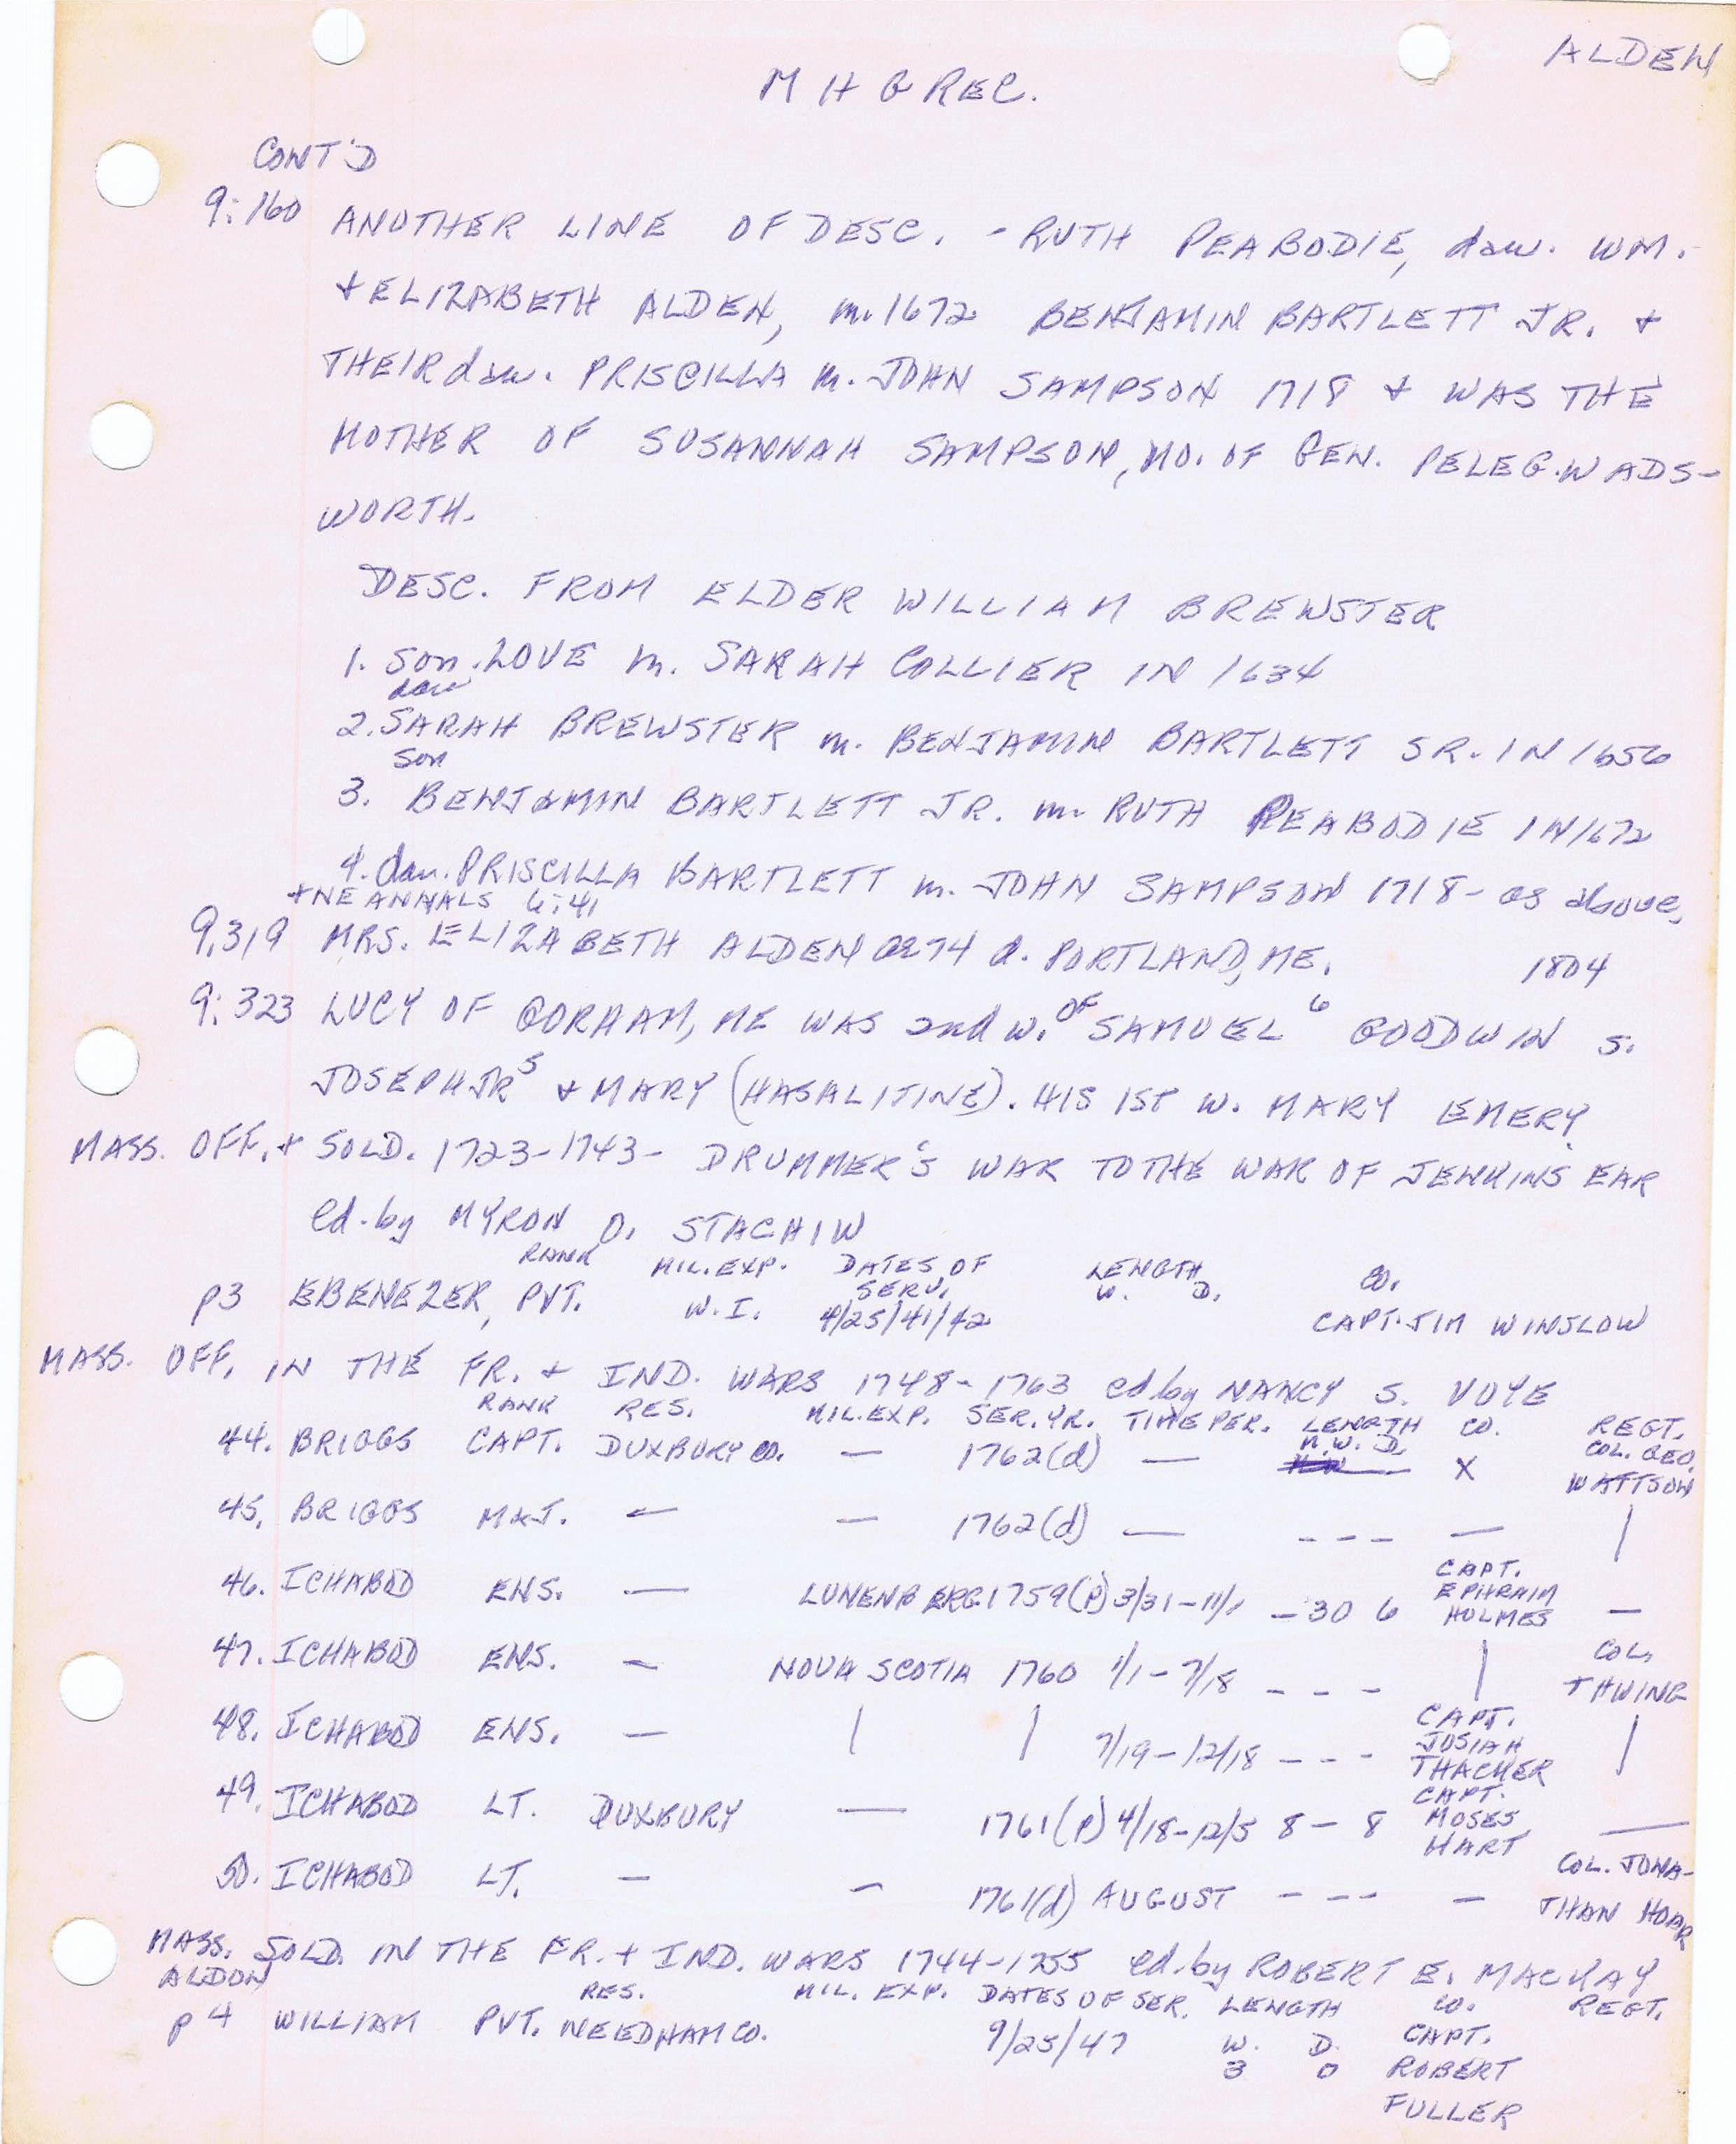 ALDEN
M H G REC.
CONT'D
9:160 ANOTHER LINE OF DESC. - RUTH PEABODIE, dau. WM.
+ ELIZABETH ALDEN, m. 1672 BENJAMIN BARTLETT JR. +
THEIR dau. PRISCILLA m. JOHN SAMPSON 1718 + WAS THE
MOTHER OF SUSANNAH SAMPSON, MO. OF GEN. PELEG WADS-
WORTH.
DESC. FROM ELDER WILLIAM BREWSTER
1. son. LOVE m. SARAH COLLIER IN 1634
dau
2. SARAH BREWSTER m. BENJAMIN BARTLETT SR. IN 1656
son
3. BENJAMIN BARTLETT JR. m. RUTH PEABODIE IN 1672
4. dau. PRISCILLA BARTLETT m. JOHN SAMPSON 1718 - as above.
+ NE ANNALS 6:41
9,319 MRS. ELIZABETH ALDEN ae 74 d. PORTLAND, ME. 1804
9:323 LUCY OF GORHAM, ME WAS 2nd w. OF SAMUEL 6 GOODWIN s.
JOSEPH JR 5 + MARY (HASALITINE). HIS 1ST W. MARY EMERY.
MASS. OFF. + SOLD. 1723-1743 - DRUMMER'S WAR TO THE WAR OF JENKINS EAR
ed. by MYRON O. STACHIW
RANK MIL. EXP. DATES OF SERV. LENGTH W. D. CO.
p3 EBENEZER, PVT. W. I. 4/25/41/42 CAPT. JIM WINSLOW
MASS. OFF. IN THE FR. + IND. WARS 1748-1763 ed by NANCY S. VOYE
RANK RES. MIL. EXP. SER. YR. TIME PER. LENGTH M. W. D. CO. REGT.
44. BRIGGS CAPT. DUXBURY CO. — 1762(d) — X COL. GEO. WATTSON
45. BRIGGS MAJ. — — 1762(d) — - - - — |
46. ICHABOD ENS. — LUNENBERG 1759(P) 3/31-11/1 - 30 6 CAPT. EPHRAIM HOLMES —
47. ICHABOD ENS. — NOVA SCOTIA 1760 1/1-7/18 - - - | COL. THWING
48. ICHABOD ENS. — | | 7/19-12/18 - - - CAPT. JOSIAH THACHER |
49. ICHABOD LT. DUXBURY — 1761(P) 4/18-12/5 8 - 8 CAPT. MOSES HART —
50. ICHABOD LT. — — 1761(d) AUGUST - - - — COL. JONA-
THAN HOAR
MASS. SOLD. IN THE FR. + IND. WARS 1744-1755 ed. by ROBERT E. MACKAY
ALDON RES. MIL. EXP. DATES OF SER. LENGTH CO. REGT.
p 4 WILLIAM PVT. NEEDHAM CO. 9/25/47 W. D. CAPT.
3 0 ROBERT
FULLER